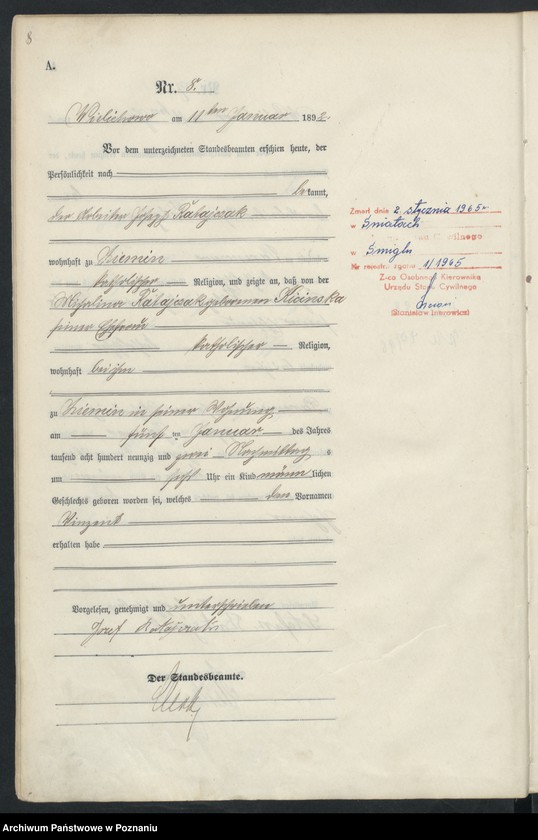 8
A.
Nr. 8.
Wielichowo am 11ten Januar 1892
Vor dem unterzeichneten Standesbeamten erschien heute, der
Persönlichkeit nach
bekannt,
der Arbeiter Joseph Ratajczak
wohnhaft zu Ziemin
katholischer Religion, und zeigte an, daß von der
Ratajczak geborenen Kicinska
seiner Ehefrau
katholischer Religion,
wohnhaft bei ihm
zu Ziemin in seiner Wohnung
am fünf ten Januar des Jahres
tausend acht hundert neunzig und zwei Nachmittag s
um Uhr ein Kind männlichen
Geschlechts geboren worden sei, welches den Vornamen
Vinzent
erhalten habe
Vorgelesen, genehmigt und unterschrieben
Józef Ratajczak
Der Standesbeamte.
Zmarł dnia 2 stycznia 1965 r.
w Śniatach
w Śmiglu
Nr rejestr. zgonu 1/1965
Z-ca Osobnego Kierownika
Urzędu Stanu Cywilnego
Archiwum Państwowe w Poznaniu